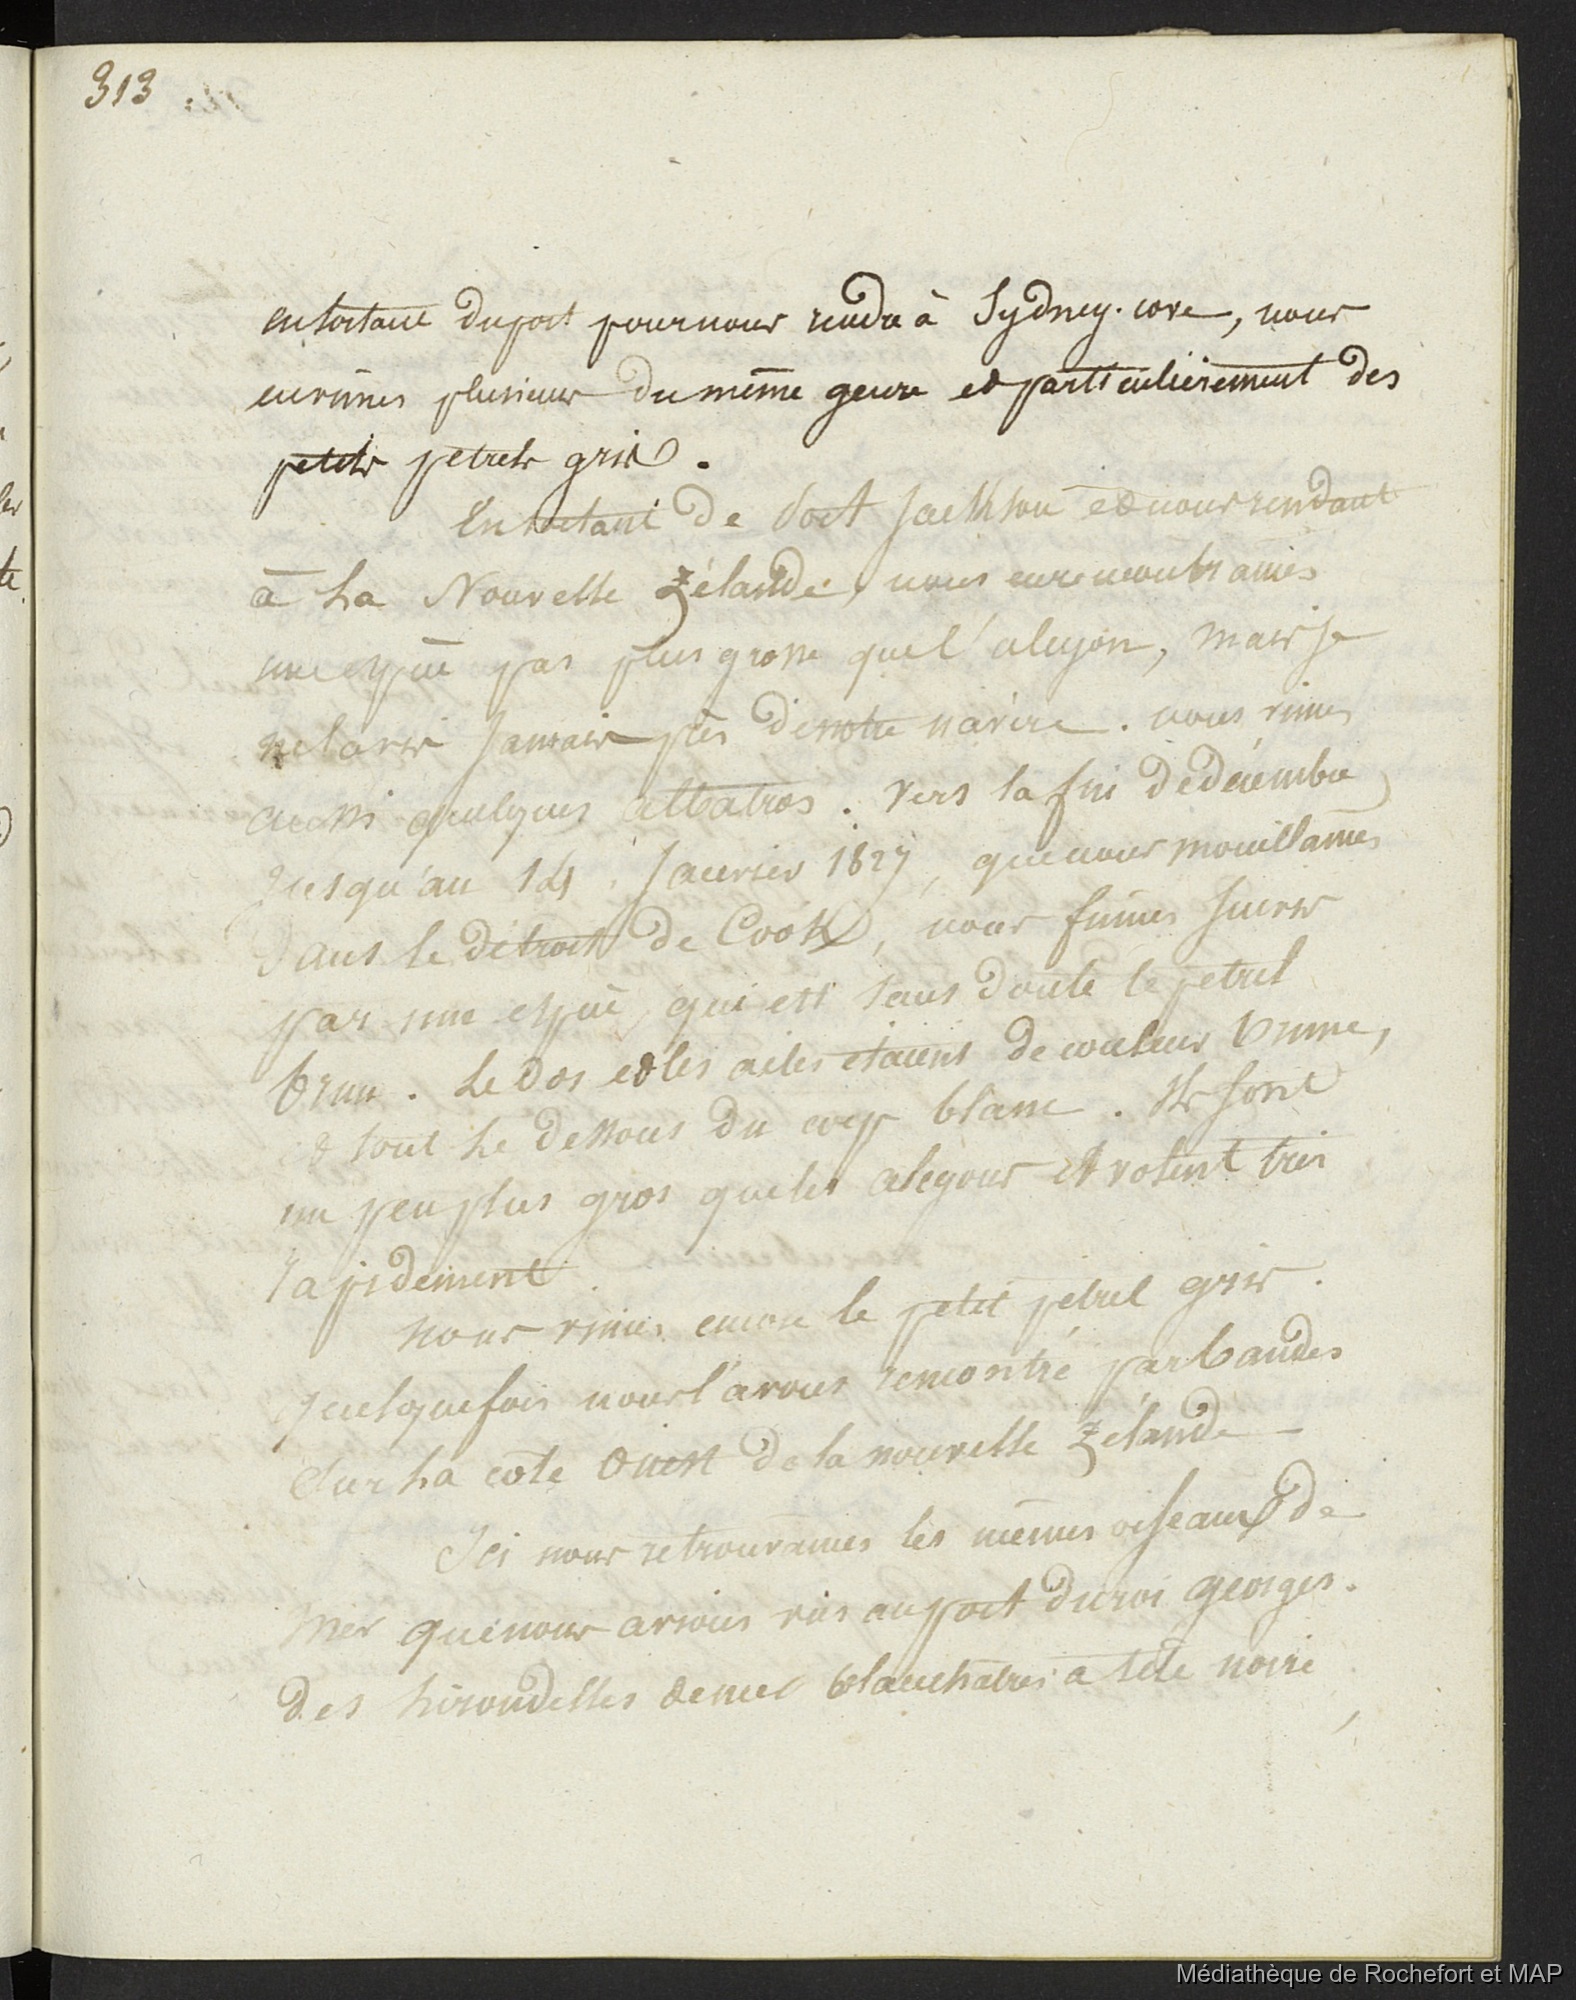 313.
en sortant du port pour nous rendre à Sydney-cove, nous
en vîmes plusieurs du même genre et particulièrement des
petits petrels gris.
En sortant de Port Jackson et nous rendant
à La Nouvelle Zélande, nous en rencontrâmes
une espèce pas plus grosse que l'alcyon, mais je
ne la vis jamais près de notre navire. nous vimes
aussi quelques albatros. Vers la fin de décembre
jusqu'au 14 Janvier 1827, que nous mouillames
dans le détroit de Cook, nous fumes suivis
par une espèce, qui est sans doute le petrel
brun. Le dos et les ailes étaient de couleur brune,
et tout Le dessous du corps blanc. Ils sont
un peu plus gros que les alcyons et volent très
rapidement.
Nous vimes encore le petit pétrel gris.
quelquefois nous l'avons rencontré par bandes
Sur La cote Ouest de la nouvelle Zélande
Ici nous retrouvames les mêmes oiseaux de
Mer que nous avions vus au port du roi Georges.
Des hirondelles de mer blanchatres à tête noire,
Médiathèque de Rochefort et MAP